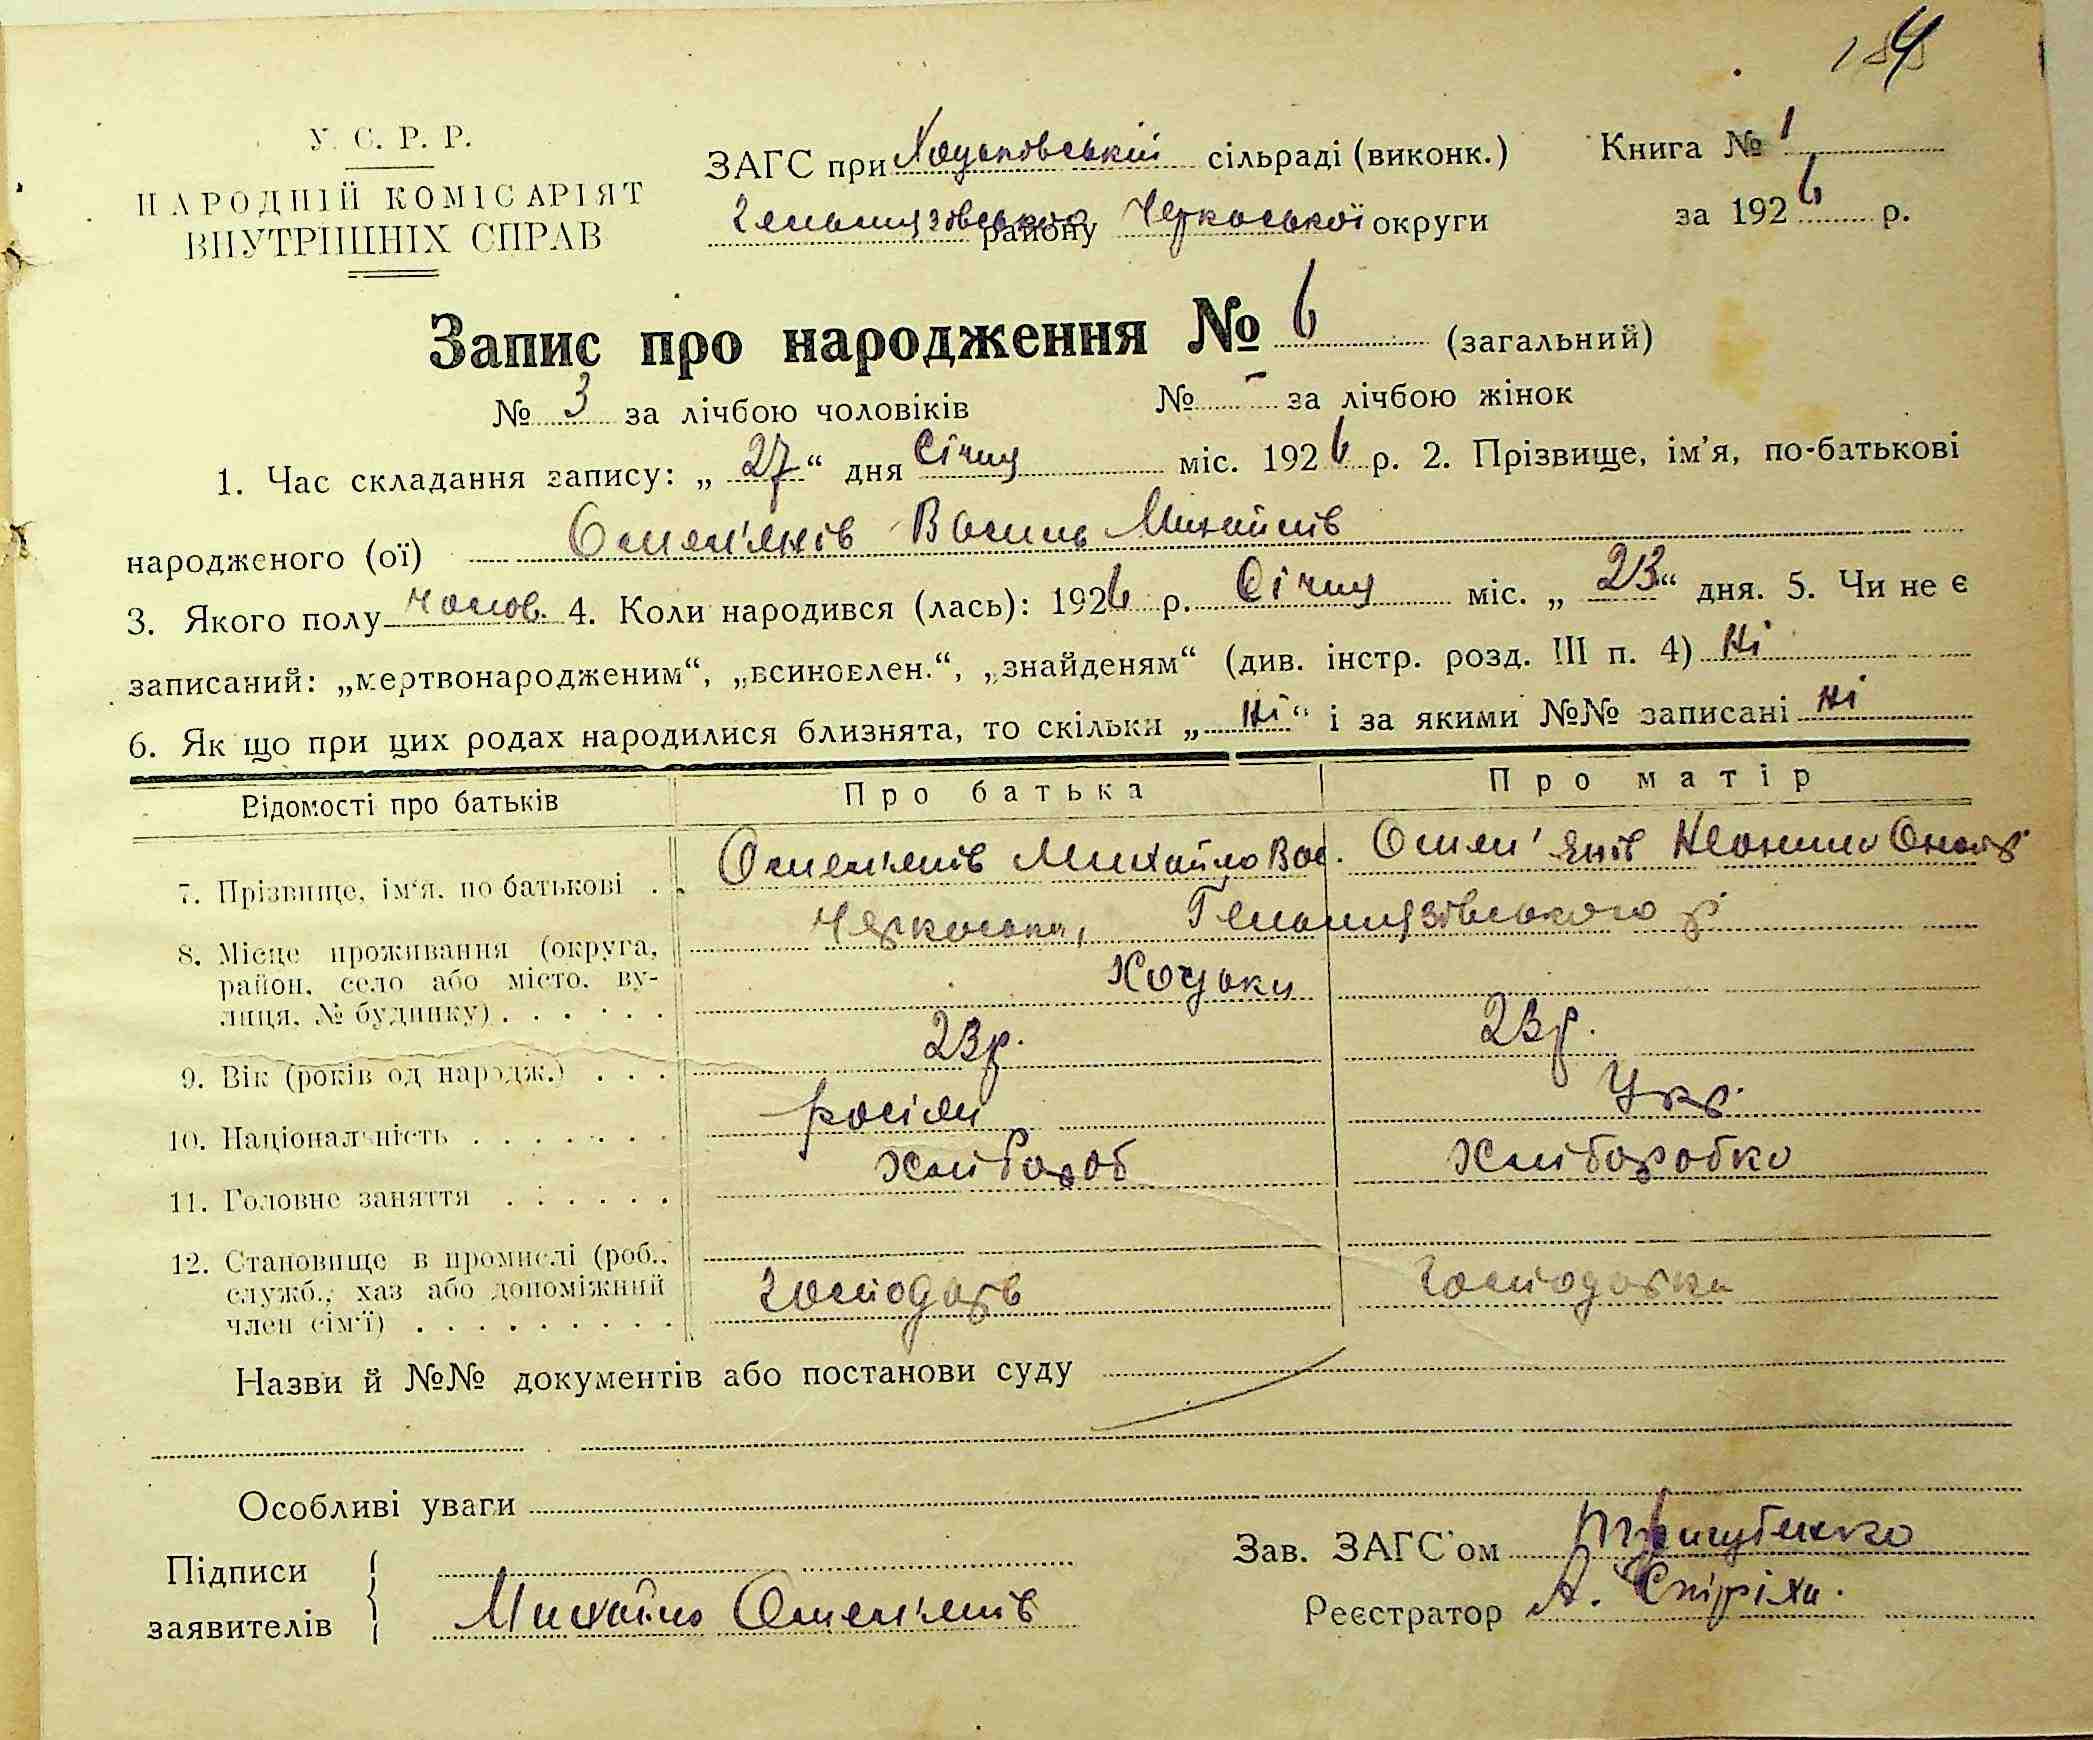 У. С. Р. Р.
НАРОДНІЙ КОМІСАРІЯТ
ВНУТРІШНІХ СПРАВ
ЗАГС при Хоцьківській сільраді (виконк.)
Гельмязівського району Черкаської округи
Книга № 1
за 1926 р.
Запис про народження № 6 (загальний)
№ 3 за лічбою чоловіків № - за лічбою жінок
1. Час складання запису: „ 27 “ дня Січня міс. 1926 р. 2. Прізвище, ім’я, по-батькові
народженого (ої) Омел'янів Василь Михайлів
3. Якого полу чолов. 4. Коли народився (лась): 1926 р. Січня міс. „ 23 “ дня. 5. Чи не є
записаний: „мертвонародженим“, „всиновлен.“, „знайденям“ (див. інстр. розд. III п. 4) Ні
6. Як що при цих родах народилися близнята, то скільки „ Ні “ і за якими №№ записані Ні
Відомості про батьків Про батька Про матір
7. Прізвище, ім’я, по батькові . . Омел'янів Михайло Вас. Омел'янів
8. Місце проживання (округа, Черкаська, Гельмязівського р
район, село або місто, ву- Хоцьки
лиця, № будинку) . . . . . .
9. Вік (років од народж.) . . . 23 р. 23 р.
10. Національність . . . . . . . росіян Укр.
11. Головне заняття . . . . . . хлібороб хліборобка
12. Становище в промислі (роб.,
служб., хаз або допоміжний господарь господарка
член сім’ї) . . . . . . . . .
Назви й №№ документів або постанови суду
Особливі уваги
Підписи
заявителів
Михайло Омел'янів
Зав. ЗАГС’ом
Реєстратор А.